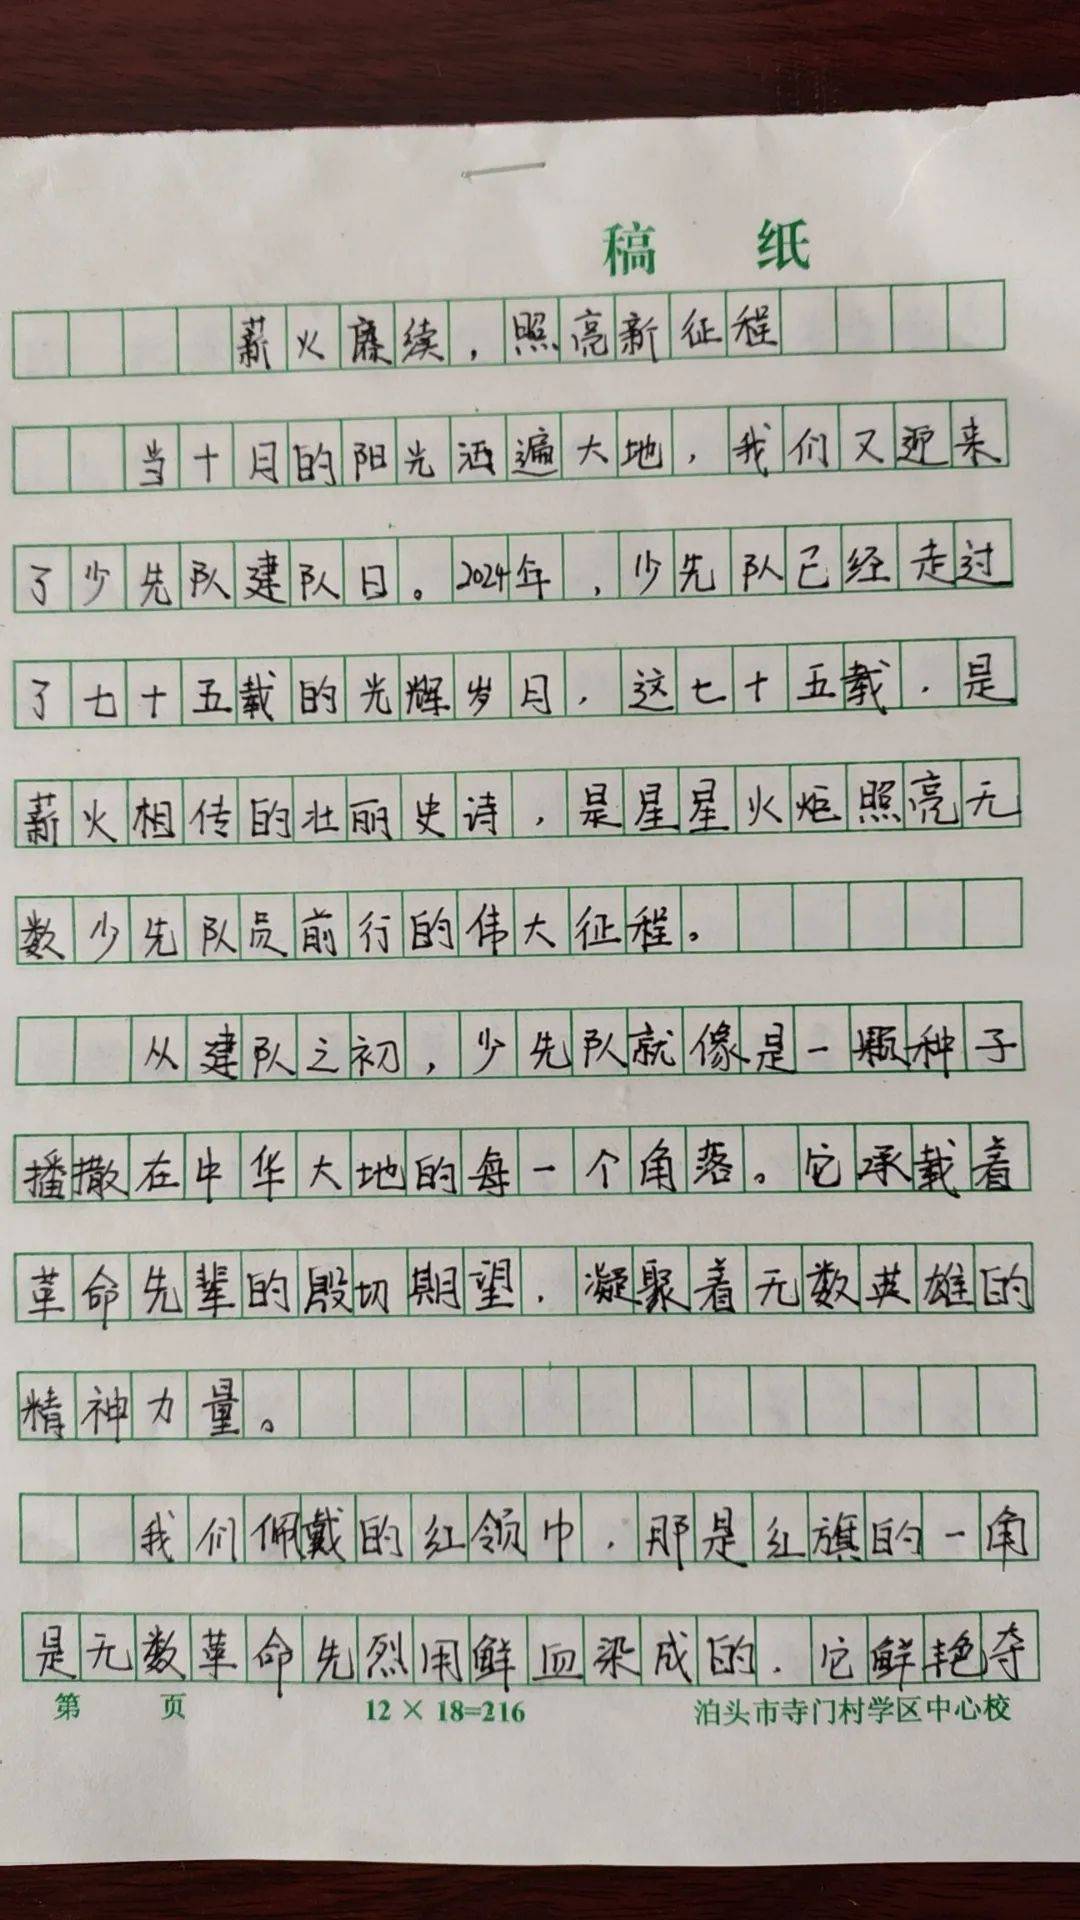 稿 纸
薪火赓续，照亮新征程
当十月的阳光洒遍大地，我们又迎来
了少先队建队日。2024年，少先队已经走过
了七十五载的光辉岁月，这七十五载，是
薪火相传的壮丽史诗，是星星火炬照亮无
数少先队员前行的伟大征程。
从建队之初，少先队就像是一颗种子
播撒在中华大地的每一个角落。它承载着
革命先辈的殷切期望，凝聚着无数英雄的
精神力量。
我们佩戴的红领巾，那是红旗的一角
是无数革命先烈用鲜血染成的，它鲜艳夺
第 页 12×18=216 泊头市寺门村学区中心校